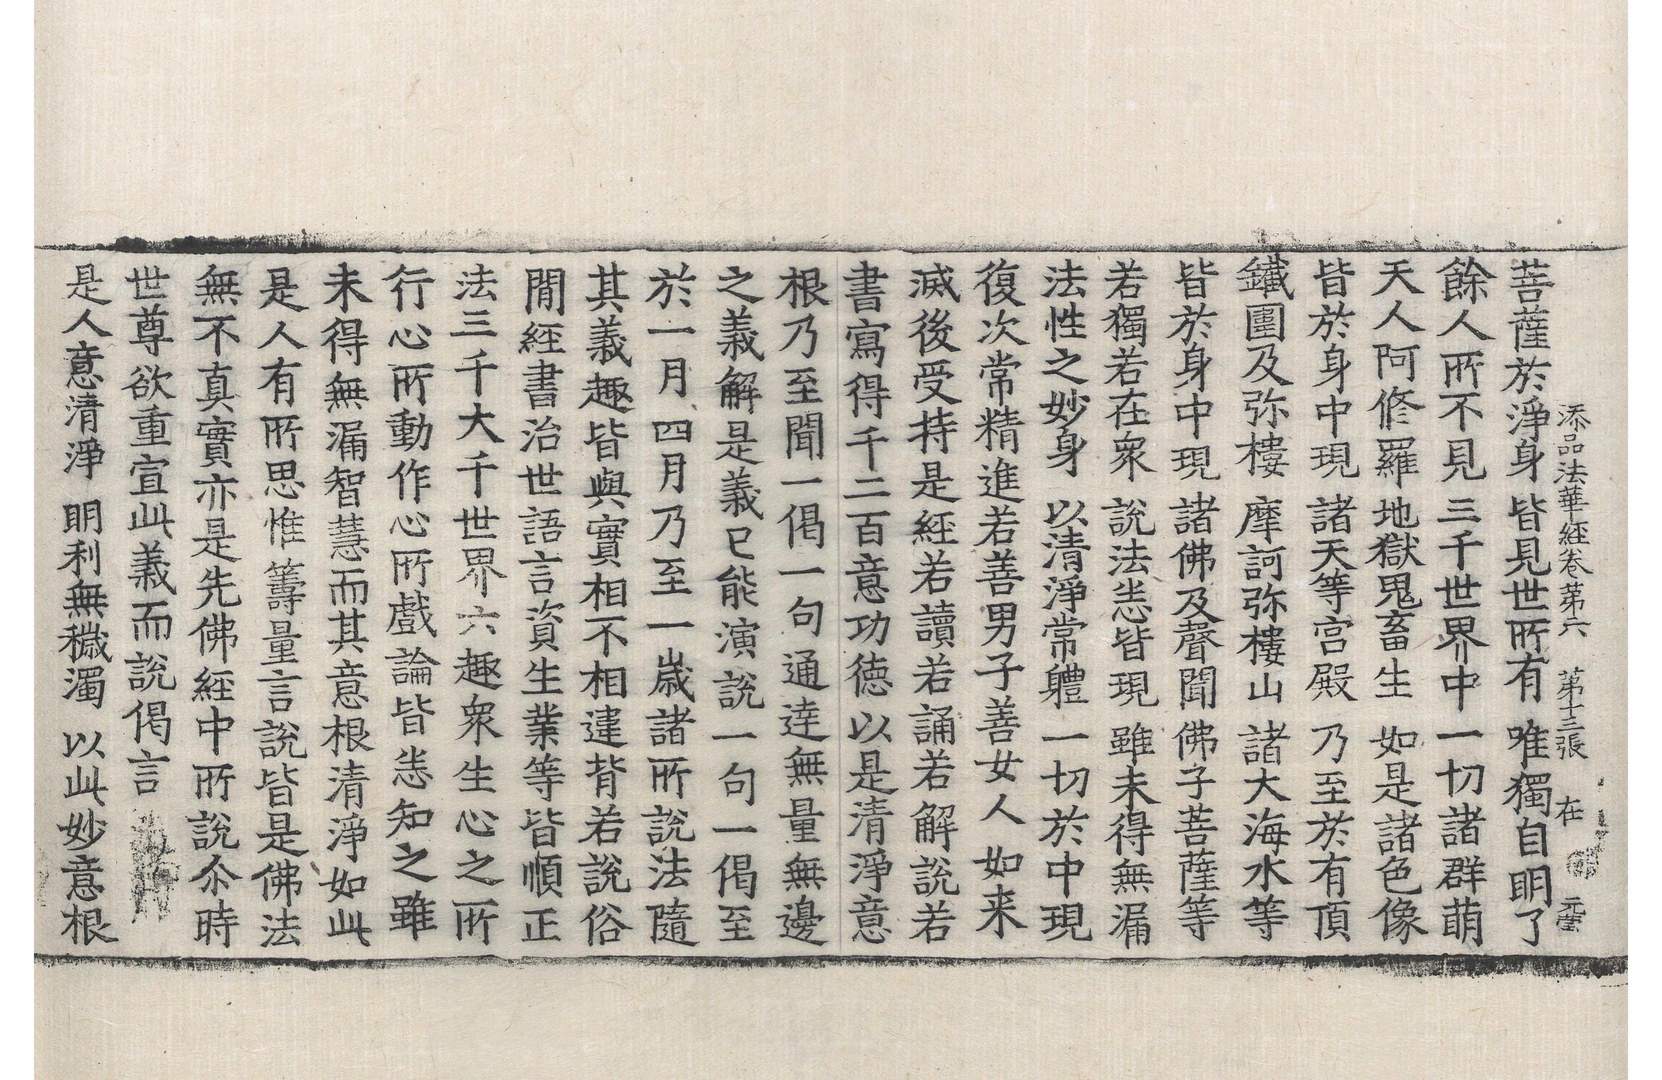 添品法華經卷第六 第十三張 在
菩薩於淨身 皆見世所有 唯獨自明了
餘人所不見 三千世界中 一切諸群萌
天人阿修羅 地獄鬼畜生 如是諸色像
皆於身中現 諸天等宮殿 乃至於有頂
鐵圍及弥樓 摩訶弥樓山 諸大海水等
皆於身中現 諸佛及聲聞 佛子菩薩等
若獨若在衆 說法悉皆現 雖未得無漏
法性之妙身 以清淨常體 一切於中現
復次常精進若善男子善女人如来
滅後受持是經若讀若誦若解說若
書寫得千二百意功徳以是清淨意
根乃至聞一偈一句通達無量無邊
之義解是義已能演說一句一偈至
於一月四月乃至一歲諸所說法隨
其義趣皆與實相不相違背若說俗
閒經書治世語言資生業等皆順正
法三千大千世界六趣衆生心之所
行心所動作心所戲論皆悉知之雖
未得無漏智慧而其意根清淨如此
是人有所思惟籌量言說皆是佛法
無不真實亦是先佛經中所說尒時
世尊欲重宣此義而說偈言
是人意清淨 明利無穢濁 以此妙意根